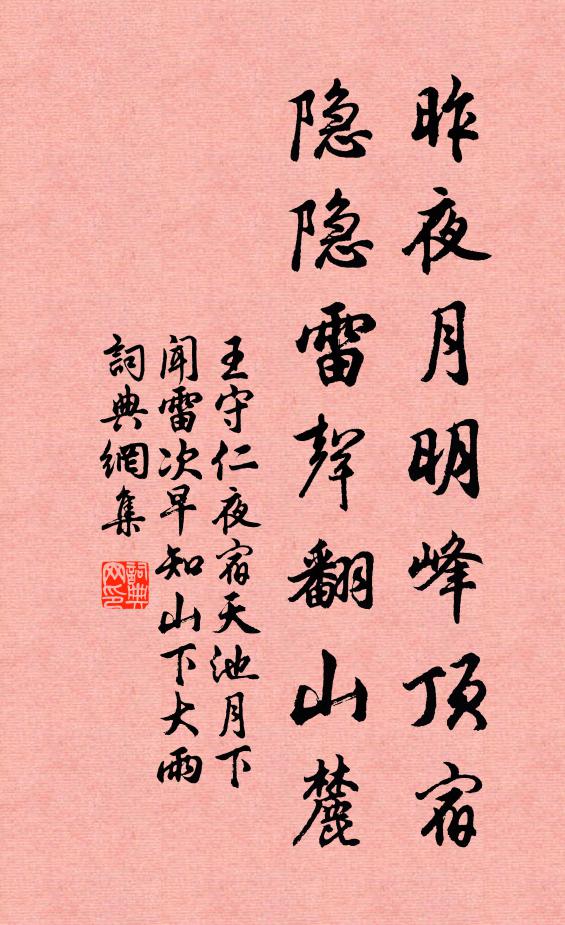 昨夜月明峰顶宿
隐隐雷聲翻山麓
王守仁夜宿天池月下
闻雷次早知山下大雨
詞典網集
詞典
网印